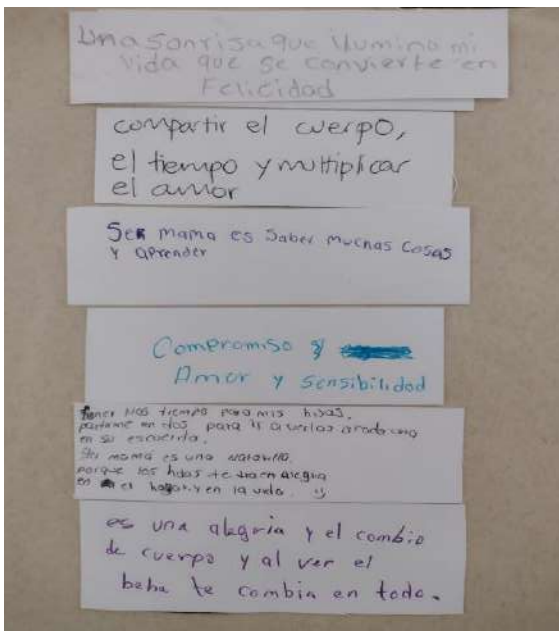 Una sonrisa que ilumina mi
vida que se convierte en
Felicidad
compartir el cuerpo,
el tiempo y multiplicar
el amor
Ser mama es Saber muchas Cosas
y aprender
Compromiso y
Amor y sensibilidad
tener mas tiempo para mis hijas.
partirme en dos para ir a verlas a cada una
en su escuelita.
Ser mamá es una maravilla
porque los hijos te traen alegria
en el hogar y en la vida.
es una alegria y el cambio
de cuerpo y al ver el
bebe te cambia en todo.